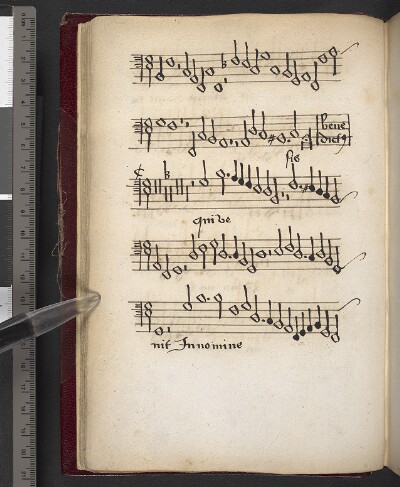 bene
dictus
sis
qui ve
nit In nomine